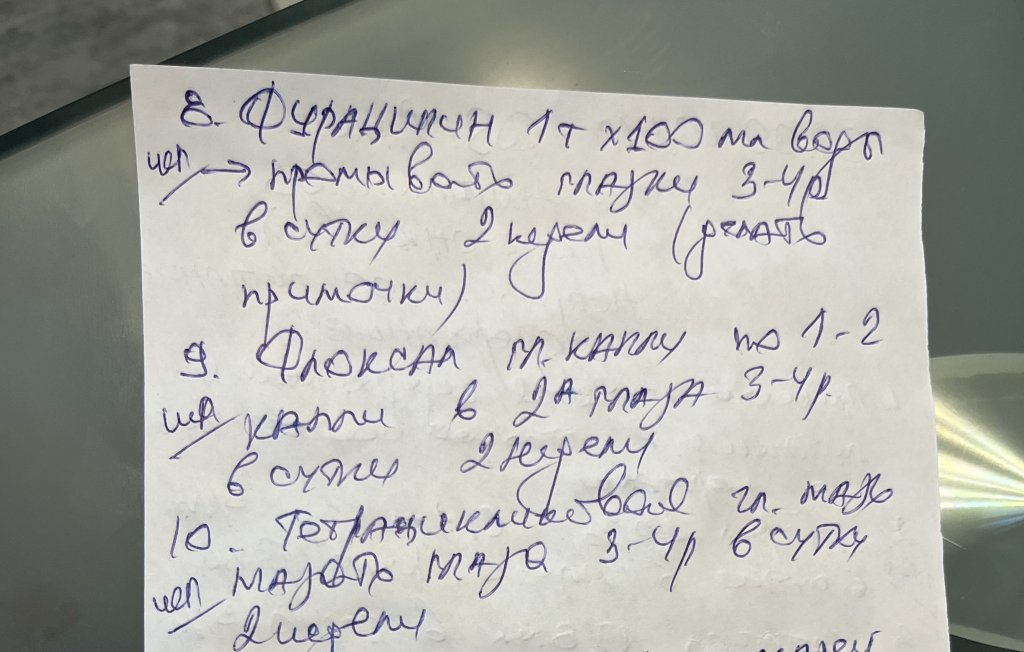 8. Фурацилин 1т х100 мл воды
→ промывать глазки 3-4р
в сутки 2 недели (делать
примочки)
9. Флоксал гл. капли по 1-2
капли в 2А глаза 3-4р.
в сутки 2 недели
10. Тетрациклиновая гл. мазь
мазать глаза 3-4р в сутки
2 недели